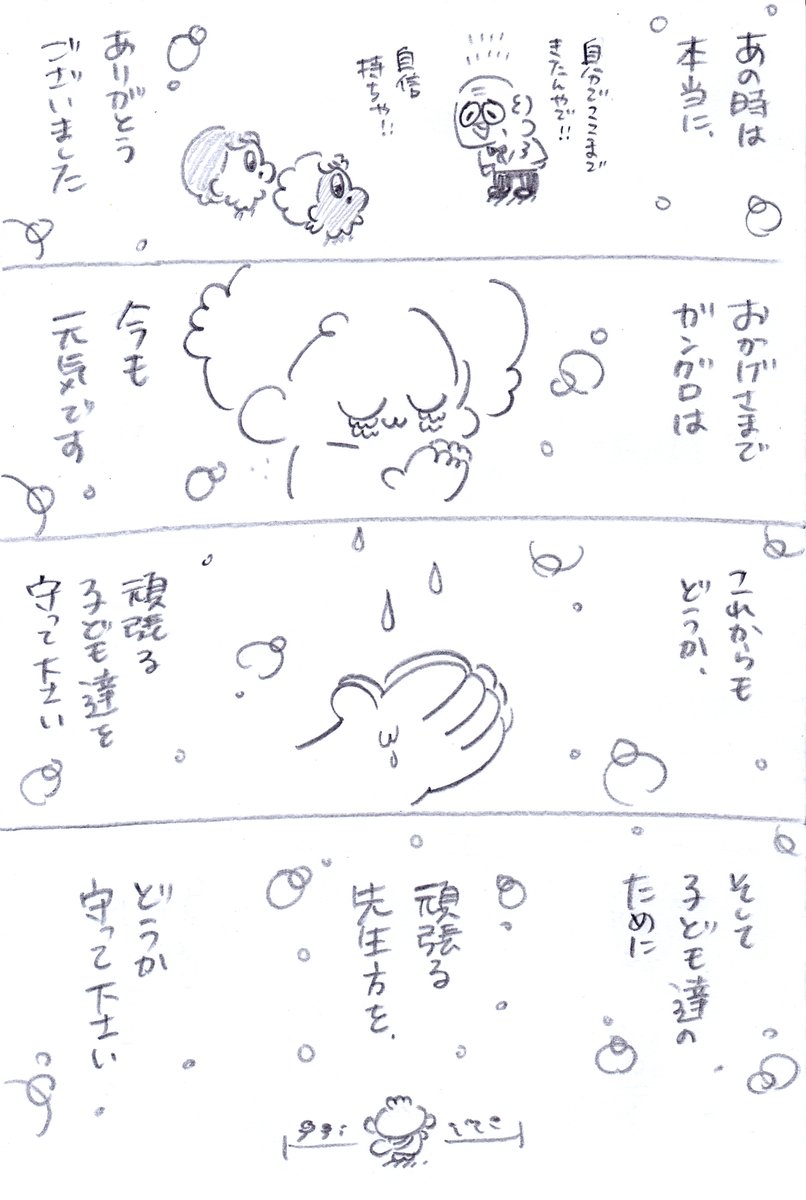 あの時は
本当に、
自分でここまで
きたんやで!!
自信
持ちや!!
ありがとう
ございました
おかげさまで
ガングロは
今も
元気です
これからも
どうか、
頑張る
子ども達を
守って下さい
そして
子ども達の
ために
頑張る
先生方を、
どうか
守って下さい